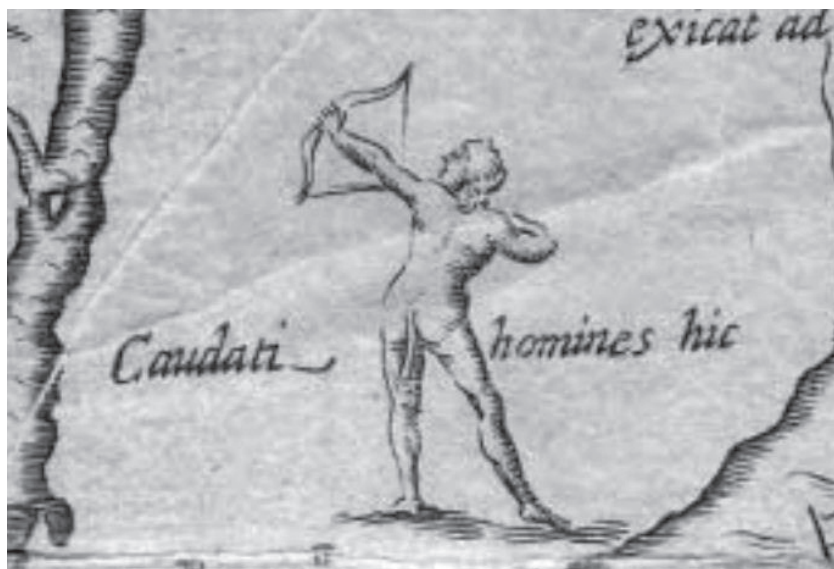 exicat ad
Caudati homines hic